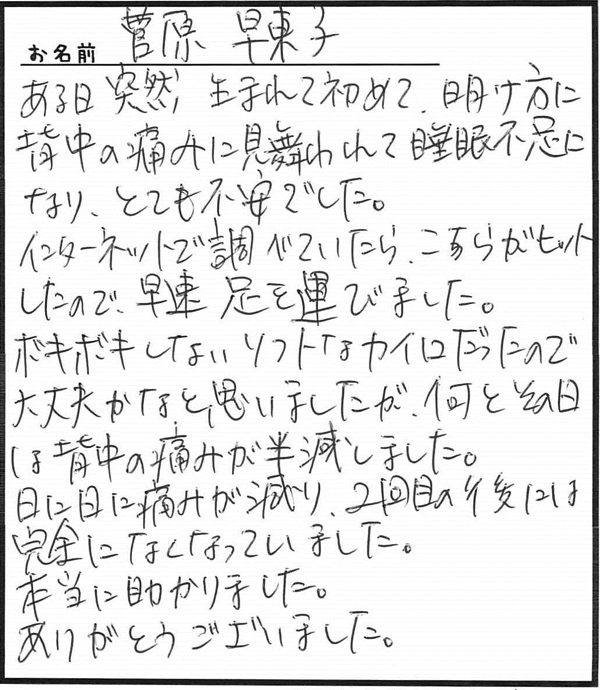 お名前 菅原 早東子
ある日突然、生まれて初めて、明け方に
背中の痛みに見舞われて睡眠不足に
なり、とても不安でした。
インターネットで調べていたら、こちらがヒット
したので、早速足を運びました。
ボキボキしないソフトなカイロだったので
大丈夫かなと思いましたが、何とその日
は背中の痛みが半減しました。
日に日に痛みが減り、2回目の後には
完全になくなっていました。
本当に助かりました。
ありがとうございました。